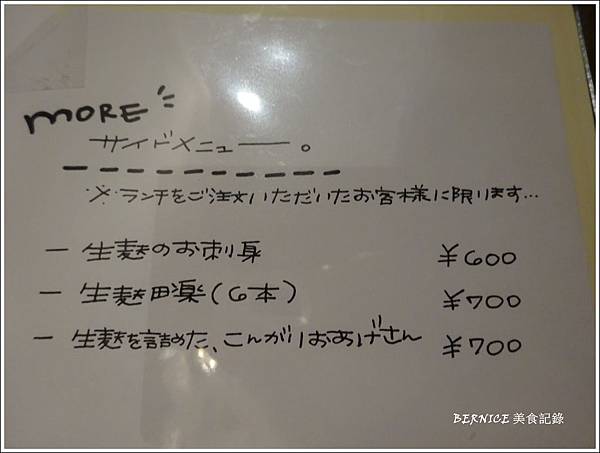 MORE
サイドメニュー。
※ランチをご注文いただいたお客様に限ります…
ー 生麩のお刺身 ¥600
ー 生麩田楽(6本) ¥700
ー 生麩を詰めた、こんがりおあげさん ¥700
BERNICE 美食記錄